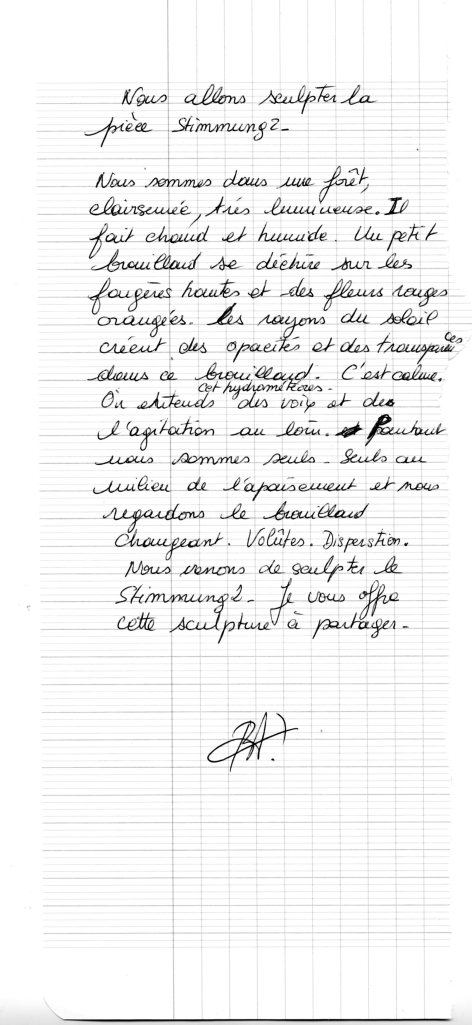 Nous allons sculpter la
pièce Stimmung2-
Nous sommes dans une forêt,
clairsemée, très lumineuse. Il
fait chaud et humide. Un petit
brouillard se déchire sur les
fougères hautes et des fleurs rouges
orangées. Les rayons du soleil
créent des opacités et des transparences
dans ce brouillard. C'est calme.
cet hydrométéores-
On entends des voix et de
l'agitation au loin. Pourtant
nous sommes seuls- Seuls au
milieu de l'apaisement et nous
regardons le brouillard
changeant. Volûtes. Disperstion.
Nous venons de sculpter le
Stimmung2- Je vous offre
cette sculpture à partager-